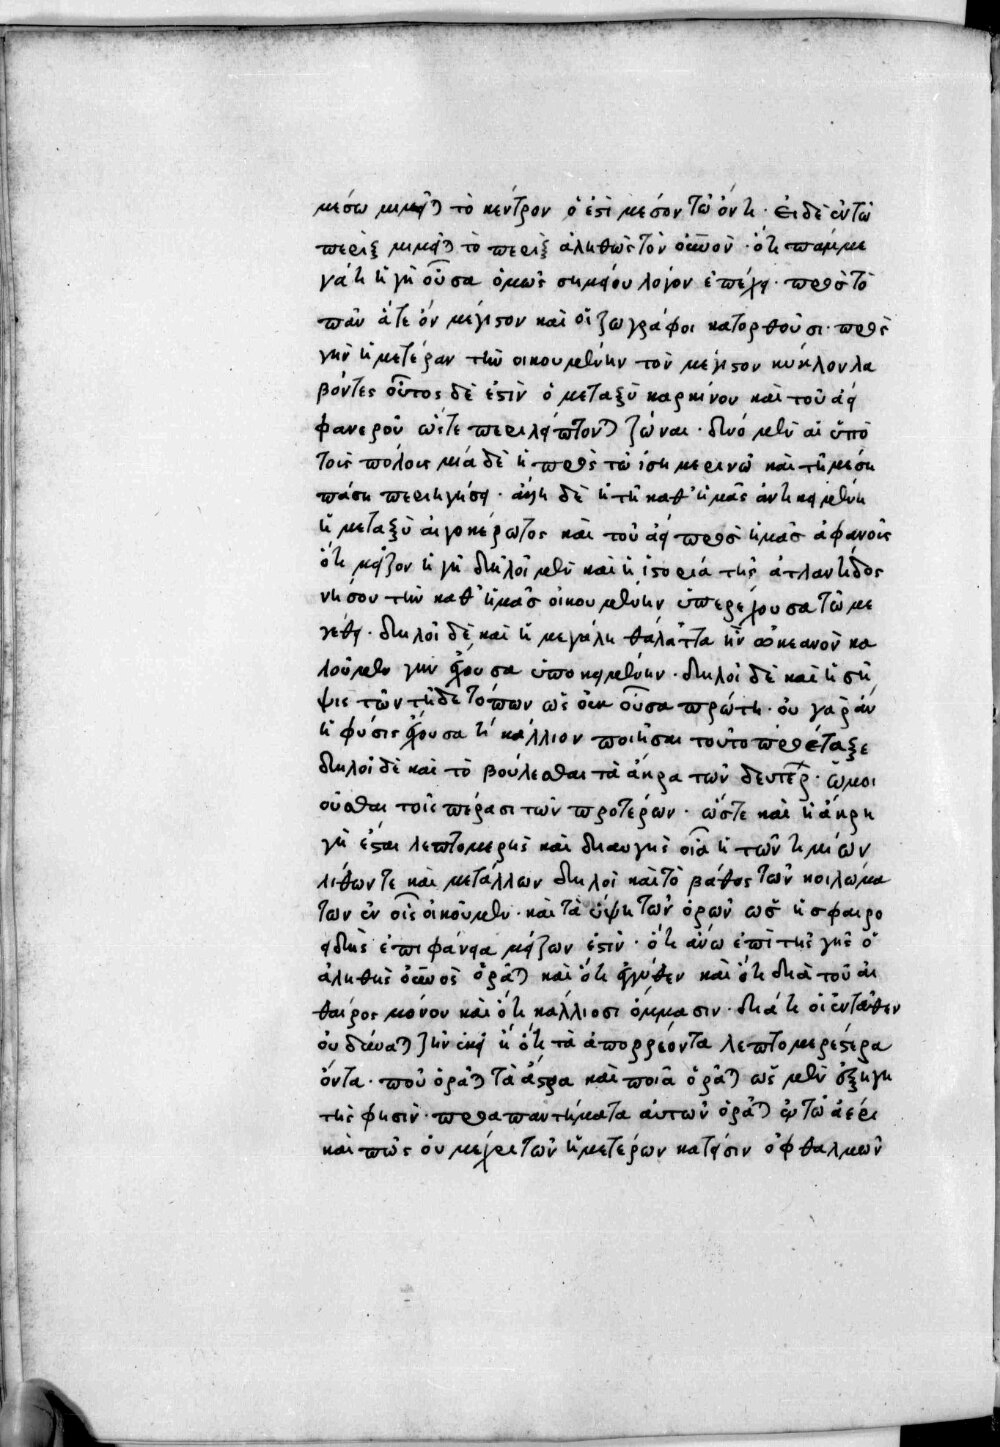 μέσω μιμεῖται τὸ κέντρον ὅ ἐστι μέσον τῶ ὄντι· εἰ δὲ ἐν τῶ
πέριξ μιμεῖται τὸ πέριξ ἀληθῶς τὸν οὐνὸν· ὅτι παμμε
γάτι ἡ γῆ οὖσα ὅμως σημείου λόγον ἐπέχει· πρὸς τὸ
πᾶν ἅτε ὂν μέγιστον καὶ οἱ ζωγράφοι κατορθοῦσι· πρὸς
γῆν ἡμετέραν τὴν οἰκουμένην τὸν μέγιστον κύκλον λα
βόντες οὗτος δέ ἐστιν ὁ μεταξὺ καρκίνου καὶ τοῦ ἀεὶ
φανεροῦ ὥστε περιλείπονται ζῶναι· δύο μὲν αἱ ὑπὸ
τοῖς πόλοις μία δὲ ἡ πρὸς τῶ ἰσημερινῶ καὶ τῆ μέση
πάση περιηγήσει· ἄλλη δὲ ἡ τῆ καθ' ἡμᾶς ἀντικειμένη
ἡ μεταξὺ αἰγοκέρωτος καὶ τοῦ ἀεὶ πρὸς ἡμᾶς ἀφανοῦς
ὅτι μείζον ἡ γῆ δηλοῖ μὲν καὶ ἡ ἱστορία τῆς ἀτλαντίδος
νήσου τὴν καθ' ἡμᾶς οἰκουμένην ὑπερέχουσα τῶ με
γέθει· δηλοῖ δὲ καὶ ἡ μεγάλη θάλαττα ἣν ὠκεανὸν κα
λοῦμεν γῆν ἔχουσα ὑποκειμένην· δηλοῖ δὲ καὶ ἡ σῆ
ψις τῶν τῆδε τόπων ὡς οὐκ οὖσα πρώτη· οὐ γὰρ ἂν
ἡ φύσις ἔχουσα τί κάλλιον ποιῆσαι τοῦτο προέταξε
δηλοῖ δὲ καὶ τὸ βούλεσθαι τὰ ἄκρα τῶν δευτέρ ὡμοι
οῦσθαι τοῖς πέρασι τῶν προτέρων· ὥστε καὶ ἡ ἄκρη
γῆ ἔσται λεπτομερὴς καὶ διαυγὴς οἷα ἡ τῶν τιμίων
λίθων τε καὶ μετάλλων δηλοῖ καὶ τὸ βάθος τῶν κοιλωμά
των ἐν οἷς οἰκοῦμεν· καὶ τὰ ὕψη τῶν ὀρῶν ὡς ἡ σφαιρο
ειδὴς ἐπιφάνεια μείζων ἐστὶν· ὅτι ἄνω ἐπὶ τῆς γῆς ὁ
ἀληθὴς οὐνὸς ὁρᾶται καὶ ὅτι ἐγγύθεν καὶ ὅτι διὰ τοῦ αἰ
θαίρος μόνου καὶ ὅτι καλλίοσι ὄμμασιν· διὰ τί οἱ ἐνταῦθεν
οὐ δύναται ζῆν ἐκεῖ ἢ ὅτι τὰ ἀπορρέοντα λεπτομερέστερα
ὄντα· ποῦ ὁρᾶται τὰ ἄστρα καὶ ποῖα ὁρᾶται ὡς μὲν ὁ ἐξηγη
τής φησιν· προαπαντήματα αὐτῶν ὁρᾶται ἐν τῶ ἀέρι
καὶ πῶς οὐ μέχρι τῶν ἡμετέρων κάτεισιν ὀφθαλμῶν